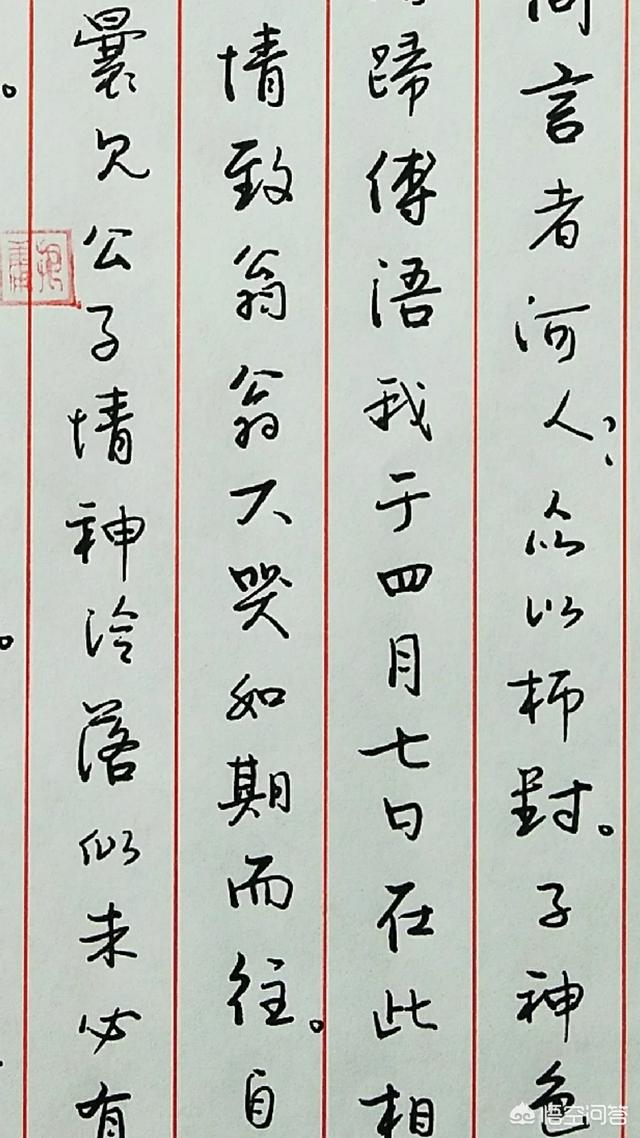 言者河人？众以柿對。子神色
歸傳语我于四月七日在此相
情致翁翁大哭如期而往。自
曩见公子情神冷落似未必有
悟空问答